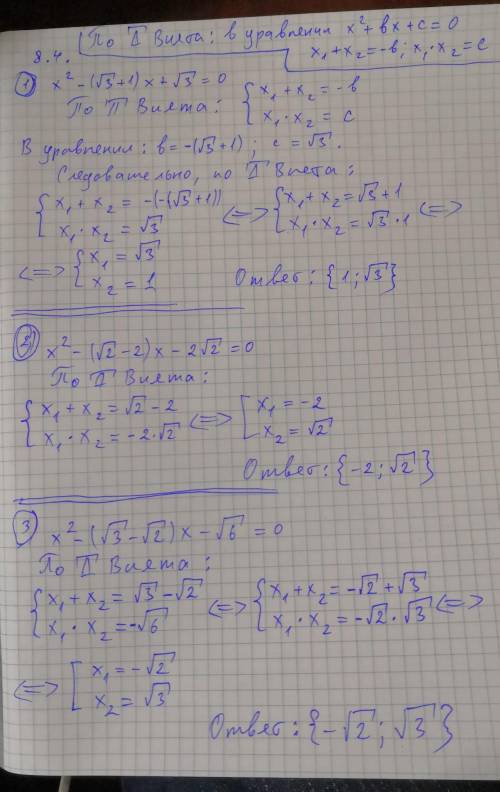 8.4. По Т Виета: в уравнении x²+bx+c=0
x₁+x₂=-b; x₁·x₂=c
① x²-(√3+1)x+√3=0
По Т Виета: { x₁+x₂=-b
x₁·x₂=c
В уравнении: b=-(√3+1); c=√3.
Следовательно, по Т Виета:
{ x₁+x₂=-(-(√3+1)) <=> { x₁+x₂=√3+1 <=>
x₁·x₂=√3 x₁·x₂=√3·1
<=> { x₁=√3
x₂=1 Ответ: {1;√3}
② x²-(√2-2)x-2√2=0
По Т Виета:
{ x₁+x₂=√2-2 <=> [ x₁=-2
x₁·x₂=-2·√2 x₂=√2
Ответ: {-2;√2}
③ x²-(√3-√2)x-√6=0
По Т Виета:
{ x₁+x₂=√3-√2 <=> { x₁+x₂=-√2+√3 <=>
x₁·x₂=-√6 x₁·x₂=-√2·√3
<=> [ x₁=-√2
x₂=√3
Ответ: {-√2;√3}